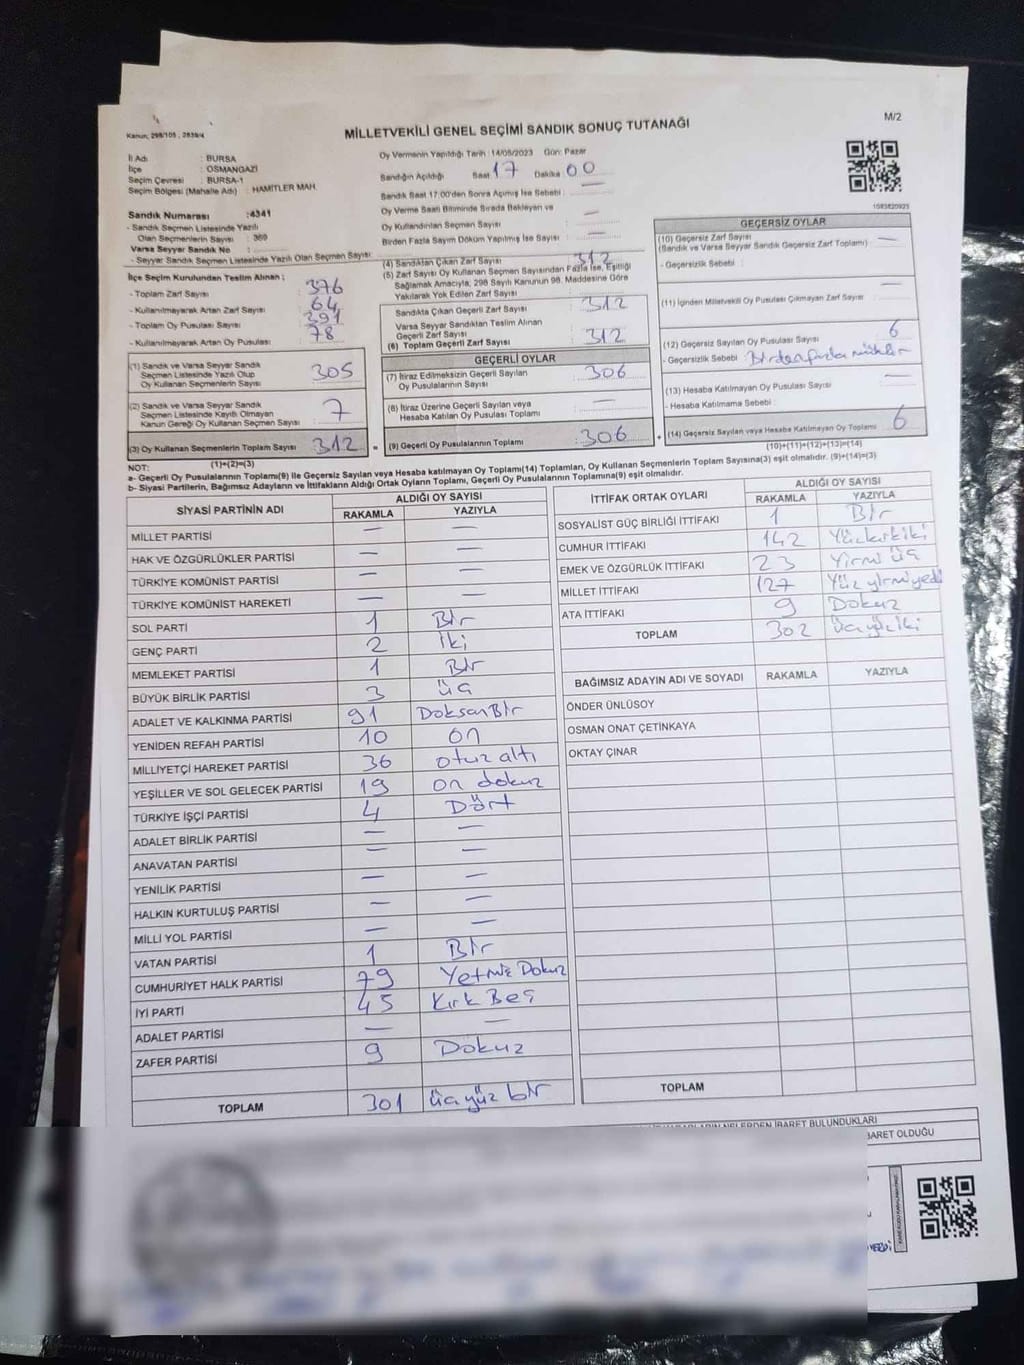 Kanun, 298/105 , 2839/4
MİLLETVEKİLİ GENEL SEÇİMİ SANDIK SONUÇ TUTANAĞI
M/2
İl Adı : BURSA
İlçe : OSMANGAZİ
Seçim Çevresi : BURSA-1
Seçim Bölgesi (Mahalle Adı) : HAMİTLER MAH.
Oy Vermenin Yapıldığı Tarih : 14/05/2023 Gün: Pazar
Sandığın Açıldığı Saat 17 Dakika 00
Sandık Saat 17:00'den Sonra Açılmış İse Sebebi : —
Oy Verme Saati Bitiminde Sırada Bekleyen ve
Oy Kullandırılan Seçmen Sayısı : —
Birden Fazla Sayım Döküm Yapılmış İse Sayısı : —
Sandık Numarası :4341
- Sandık Seçmen Listesinde Yazılı
Olan Seçmenlerin Sayısı : 360
Varsa Seyyar Sandık No :
- Seyyar Sandık Seçmen Listesinde Yazılı Olan Seçmen Sayısı
İlçe Seçim Kurulundan Teslim Alınan ;
- Toplam Zarf Sayısı : 376
- Kullanılmayarak Artan Zarf Sayısı : 64
- Toplam Oy Pusulası Sayısı : 391
- Kullanılmayarak Artan Oy Pusulası : 78
(1) Sandık ve Varsa Seyyar Sandık
Seçmen Listesinde Yazılı Olup
Oy Kullanan Seçmenlerin Sayısı 305
(2) Sandık ve Varsa Seyyar Sandık
Seçmen Listesinde Kayıtlı Olmayan
Kanun Gereği Oy Kullanan Seçmen Sayısı 7
(3) Oy Kullanan Seçmenlerin Toplam Sayısı : 312
(1)+(2)=(3)
(4) Sandıktan Çıkan Zarf Sayısı : 312
(5) Zarf Sayısı Oy Kullanan Seçmen Sayısından Fazla İse, Eşitliği
Sağlamak Amacıyla, 298 Sayılı Kanunun 98. Maddesine Göre
Yakılarak Yok Edilen Zarf Sayısı :
Sandıkta Çıkan Geçerli Zarf Sayısı : 312
Varsa Seyyar Sandıktan Teslim Alınan
Geçerli Zarf Sayısı
(6) Toplam Geçerli Zarf Sayısı : 312
GEÇERLİ OYLAR
(7) İtiraz Edilmeksizin Geçerli Sayılan
Oy Pusulalarının Sayısı : 306
(8) İtiraz Üzerine Geçerli Sayılan veya
Hesaba Katılan Oy Pusulası Toplamı : —
= (9) Geçerli Oy Pusulalarının Toplamı : 306 +
1083820925
GEÇERSİZ OYLAR
(10) Geçersiz Zarf Sayısı —
(Sandık ve Varsa Seyyar Sandık Geçersiz Zarf Toplamı)
- Geçersizlik Sebebi :
(11) İçinden Milletvekili Oy Pusulası Çıkmayan Zarf Sayısı —
(12) Geçersiz Sayılan Oy Pusulası Sayısı 6
- Geçersizlik Sebebi : Birden fazla mühür
(13) Hesaba Katılmayan Oy Pusulası Sayısı —
- Hesaba Katılmama Sebebi :
(14) Geçersiz Sayılan veya Hesaba Katılmayan Oy Toplamı 6
(10)+(11)+(12)+(13)=(14)
NOT:
a- Geçerli Oy Pusulalarının Toplamı(9) ile Geçersiz Sayılan veya Hesaba katılmayan Oy Toplamı(14) Toplamları, Oy Kullanan Seçmenlerin Toplam Sayısına(3) eşit olmalıdır. (9)+(14)=(3)
b- Siyasi Partilerin, Bağımsız Adayların ve İttifakların Aldığı Ortak Oyların Toplamı, Geçerli Oy Pusulalarının Toplamına(9) eşit olmalıdır.
SİYASİ PARTİNİN ADI ALDIĞI OY SAYISI
RAKAMLA YAZIYLA
MİLLET PARTİSİ — —
HAK VE ÖZGÜRLÜKLER PARTİSİ — —
TÜRKİYE KOMÜNİST PARTİSİ — —
TÜRKİYE KOMÜNİST HAREKETİ — —
SOL PARTİ 1 Bir
GENÇ PARTİ 2 İki
MEMLEKET PARTİSİ 1 Bir
BÜYÜK BİRLİK PARTİSİ 3 üç
ADALET VE KALKINMA PARTİSİ 91 DoksanBir
YENİDEN REFAH PARTİSİ 10 on
MİLLİYETÇİ HAREKET PARTİSİ 36 otuz altı
YEŞİLLER VE SOL GELECEK PARTİSİ 19 on dokuz
TÜRKİYE İŞÇİ PARTİSİ 4 Dört
ADALET BİRLİK PARTİSİ — —
ANAVATAN PARTİSİ — —
YENİLİK PARTİSİ — —
HALKIN KURTULUŞ PARTİSİ — —
MİLLİ YOL PARTİSİ — —
VATAN PARTİSİ 1 Bir
CUMHURİYET HALK PARTİSİ 79 Yetmiş Dokuz
İYİ PARTİ 45 Kırk Beş
ADALET PARTİSİ — —
ZAFER PARTİSİ 9 Dokuz
TOPLAM 301 üçyüz bir
İTTİFAK ORTAK OYLARI ALDIĞI OY SAYISI
RAKAMLA YAZIYLA
SOSYALİST GÜÇ BİRLİĞİ İTTİFAKI 1 Bir
CUMHUR İTTİFAKI 142 Yüzkırkiki
EMEK VE ÖZGÜRLÜK İTTİFAKI 23 Yirmi üç
MİLLET İTTİFAKI 127 Yüz yirmiyedi
ATA İTTİFAKI 9 Dokuz
TOPLAM 302 üçyüziki
BAĞIMSIZ ADAYIN ADI VE SOYADI RAKAMLA YAZIYLA
ÖNDER ÜNLÜSOY
OSMAN ONAT ÇETİNKAYA
OKTAY ÇINAR
TOPLAM
NELERDEN İBARET BULUNDUKLARI
BARET OLDUĞU